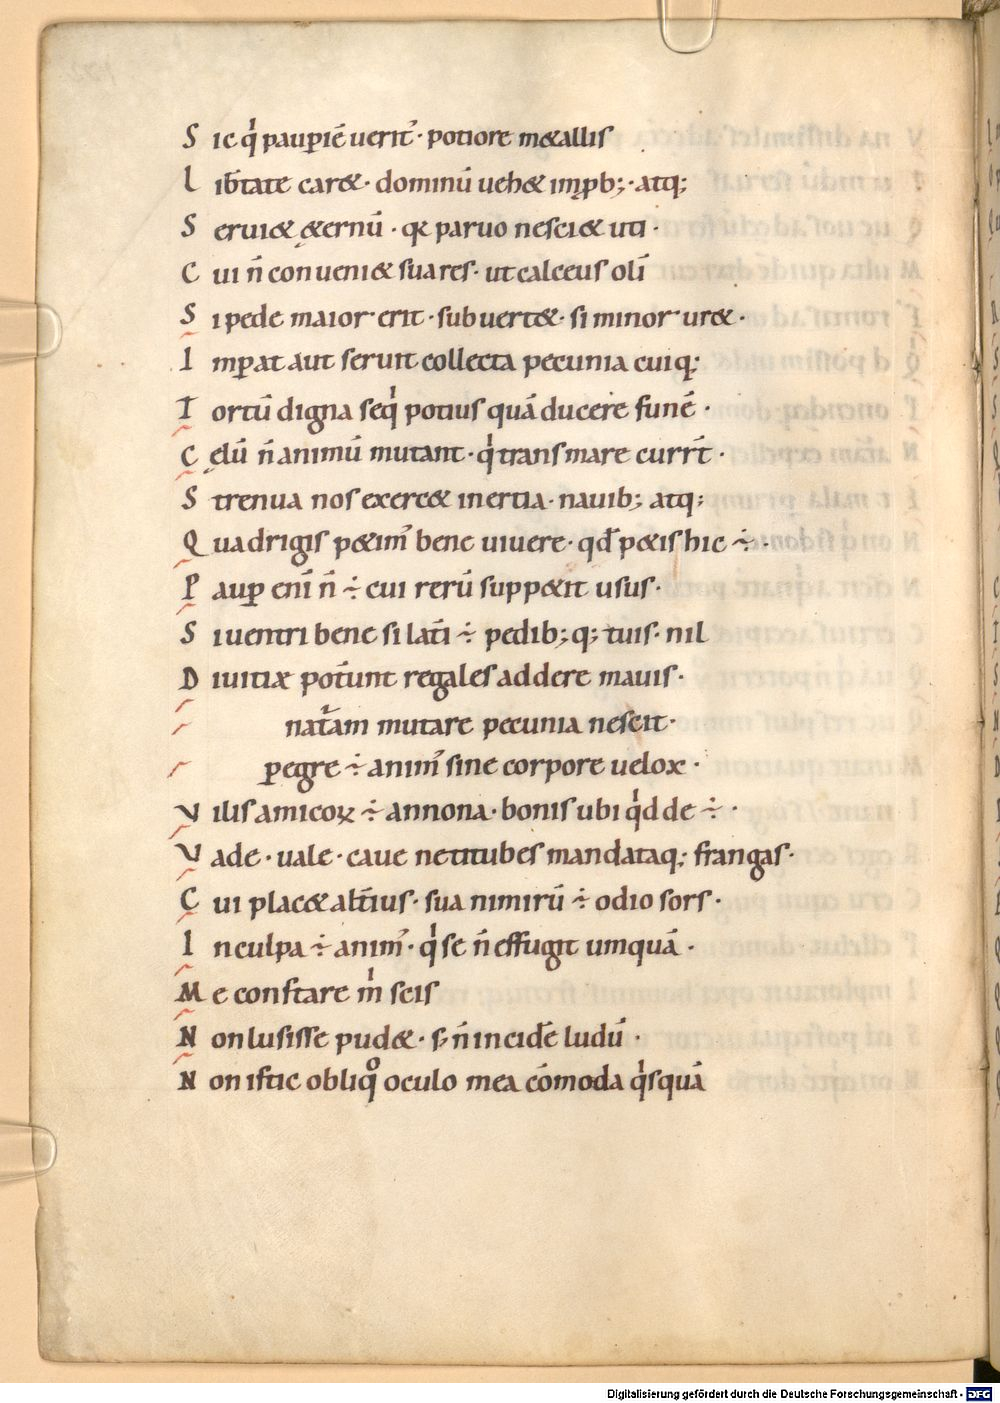 S ic qͥ paup̄iē ueritꝰ· potiore m&allis
L ib̄tate car&· dominū ueh& imꝓb;· atq;
S erui& &ernū· qꝛ paruo nesci& uti·
C ui n̄ conueni& sua res· ut calceus oli̅
S i pede maior erit· subuert&· si minor ur&·
I mꝑat aut seruit collecta pecunia cuiq;
T ortū digna seqͥ potius quā ducere funē·
C ęlū n̄ animū mutant· qͥ trans mare curr̄t·
S trenua nos exerc& inertia· nauib; atq;
Q uadrigis p&imꝰ bene uiuere· qd̄ p&is hic ÷·
P auꝑ eni̅ n̄ ÷ cui rerū supp&it usus·
S i uentri bene si lat̄i ÷ pedib;q; tuis· nil
D iuitiæ pot̄unt regales addere maius·
nat̄am mutare pecunia nescit·
ꝑegre ÷ animꝰ sine corpore uelox·
V ilis amicoꝝ ÷ annona· bonis ubi qͥd de ÷·
V ade· uale· caue ne titubes mandataq; frangas·
C ui plac& alt̄ius· sua nimirū ÷ odio sors·
I n culpa ÷ animꝰ· qͥ se n̄ effugit umquā·
M e constare mͥ scis
N on lusisse pud&· s; n̄ incid̄e ludū·
N on istic obliqͦ oculo mea cōmoda qͥsquā
Digitalisierung gefördert durch die Deutsche Forschungsgemeinschaft - DFG